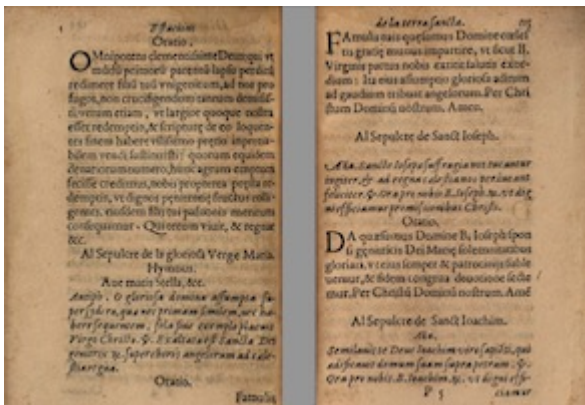 Oratio.
OMnipotens clementissime Deus qui vt
mundū primorū parentū lapsu perditū
redimere filiū tuū vnigenitum, ad nos pro
fugos, non crucifigendum tantum
verum etiam, vt largior quoque nostra
esset redemptio, & scripturę de eo loquen-
tes finem habere vilissimo pretio
bilem vendi sustinuisti: quorum equidem
denariorum numero, hunc agrum emptum
fecisse credimus, nobis propterea
demptis, vt dignos pęnitentię fructus colli-
gentes, eiusdem filij tui passionis meritum
consequamur. Qui tecum viuit, & regnat
&c.
Al Sepulcre de la gloriosa Verge Maria.
Hymnus.
Aue maris Stella, &c.
Antiph. O gloriosa domina assumpta su-
per sydera, quæ nec primam similem, nec ha-
bere sequentem, sola sine exemplo placuisti
Virgo Christo. ℣. Exaltata est sancta Dei
genitrix ℟. super choros angelorum ad cæle-
stia regna.
Oratio.
Famulis
de la terra sancta.
FAmulis tuis quęsumus Domine cœles
tis gratię munus impartire, vt sicut B.
Virginis partus nobis extitit salutis exor-
dium: Ita eius assumptio gloriosa
ad gaudium tribuat angelorum. Per Chri
stum Dominū nostrum. Amen.
Al Sepulcre de Sanct Ioseph.
Aña. Sancte Ioseph suffragia nos tueantur
iugiter, & ad regna cælestia nos perducant
feliciter. ℣. Ora pro nobis B. Ioseph. ℟. vt dig
ni efficiamur promissionibus Christi.
Oratio.
DA quæsumus Domine B. Ioseph spon
si genitricis Dei Marię solemnitatibus
gloriari, vt eius semper & patrociniis suble
uemur, & fidem congrua deuotione secte
mur. Per Christū Dominū nostrum. Amē
Al Sepulcre de Sanct Ioachim.
Aña.
Similauit te Deus Ioachim viro sapiēti, qui
ædificauit domum suam supra petram. ℣.
Ora pro nobis B. Ioachim. ℟. vt digni effi-
P 5 ciamur